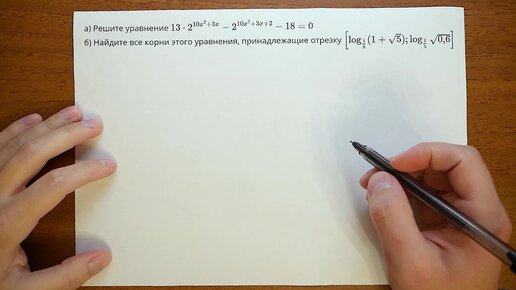 а) Решите уравнение 13 · 2^{10x²+3x} − 2^{10x²+3x+2} − 18 = 0
б) Найдите все корни этого уравнения, принадлежащие отрезку [log_{1/3}(1 + √5); log_{1/3} √0,6]